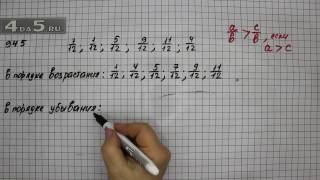 4DA5.RU
945 1/12, 1/12, 5/12, 9/12, 11/12, 4/12
a/b > c/b, если a > c
в порядке возрастания: 1/12, 4/12, 5/12, 7/12, 9/12, 11/12
в порядке убывания: